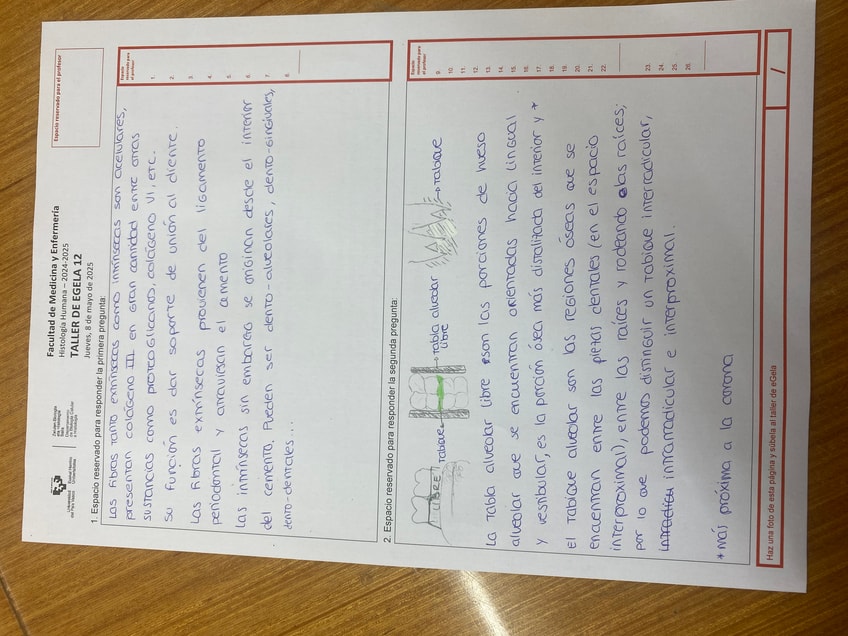 Facultad de Medicina y Enfermería
Histología Humana – 2024-2025
TALLER DE EGELA 12
Jueves, 8 de mayo de 2025
Espacio reservado para el profesor
1. Espacio reservado para responder la primera pregunta:
Las fibras tanto extrínsecas como intrínsecas son acelulares,
presentan colágeno III en gran cantidad entre otras
sustancias como proteoglicanos, colágeno VI, etc.
Su función es dar soporte de unión al diente.
Las fibras extrínsecas provienen del ligamento
periodontal y atraviesan el cemento
Las intrínsecas sin embargo se originan desde el interior
del cemento. Pueden ser dento-alveolares, dento-gingivales,
dento-dentales...
Espacio reservado para el profesor
1.
2.
3.
4.
5.
6.
7.
8.
2. Espacio reservado para responder la segunda pregunta:
LIBRE
Tabique
Tabla alveolar
libre
Tabique
La tabla alveolar libre son las porciones de hueso
alveolar que se encuentran orientadas hacia lingual
y vestibular, es la porción ósea más distalizada del interior y *
El tabique alveolar son las regiones óseas que se
encuentran entre las piezas dentales (en el espacio
interproximal), entre las raíces y rodeando las raíces;
por lo que podemos distinguir un tabique interradicular,
intrarradicular e interproximal.
* más próxima a la corona
Espacio reservado para el profesor
9.
10.
11.
12.
13.
14.
15.
16.
17.
18.
19.
20.
21.
22.
23.
24.
25.
26.
Haz una foto de esta página y súbela al taller de eGela
/